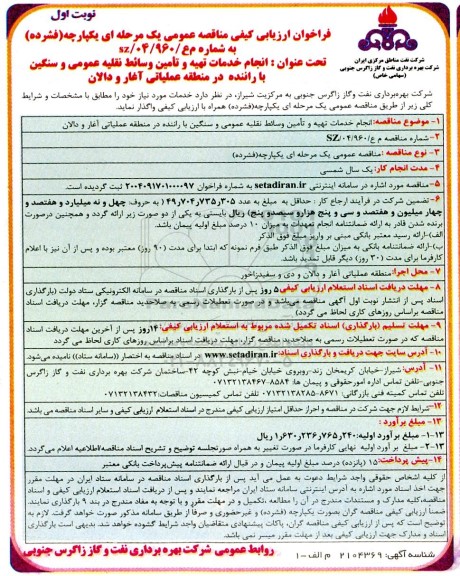 نوبت اول
فراخوان ارزیابی کیفی مناقصه عمومی یک مرحله ای یکپارچه(فشرده)
به شماره م‌ع/۹۶۰/۰۴/sz
تحت عنوان : انجام خدمات تهیه و تأمین وسائط نقلیه عمومی و سنگین
با راننده در منطقه عملیاتی آغار و دالان
شرکت نفت مناطق مرکزی ایران
شرکت بهره برداری نفت و گاز زاگرس جنوبی
(سهامی خاص)
شرکت بهره‌برداری نفت وگاز زاگرس جنوبی به مرکزیت شیراز، در نظر دارد خدمات مورد نیاز خود را مطابق با مشخصات و شرایط
کلی زیر از طریق مناقصه عمومی یک مرحله ای یکپارچه(فشرده) همراه با ارزیابی کیفی واگذار نماید.
۱- موضوع مناقصه: انجام خدمات تهیه و تأمین وسائط نقلیه عمومی و سنگین با راننده در منطقه عملیاتی آغار و دالان
۲- شماره مناقصه م ع/۹۶۰/۰۴/SZ
۳- نوع مناقصه : مناقصه عمومی یک مرحله ای یکپارچه(فشرده)
۴- مدت انجام کار: یک سال شمسی
۵- مناقصه مورد اشاره در سامانه اینترنتی setadiran.ir به شماره فراخوان ۲۰۰۴۰۹۱۷۰۱۰۰۰۰۹۷ ثبت گردیده است.
۶- تضمین شرکت در فرآیند ارجاع کار : حداقل به مبلغ به عدد ۴۹٫۷۰۴٫۷۳۵٫۳۰۵ ( به حروف: چهل و نه میلیارد و هفتصد و
چهار میلیون و هفتصد و سی و پنج هزارو سیصدو پنج) ریال بایستی به یکی از دو صورت زیر ارائه گردد و همچنین درصورت
برنده شدن قادر به ارائه ضمانتنامه انجام تعهدات به میزان ۱۰ درصد مبلغ اولیه پیمان باشد.
الف)-ارائه رسید معتبر بانکی مبنی بر واریز مبلغ فوق الذکر
ب)-ارائه ضمانتنامه بانکی به میزان مبلغ فوق الذکر طبق فرم نمونه که ابتدا برای مدت (۹۰ روز) معتبر بوده و پس از آن نیز با اعلام
کارفرما برای مدت (۳۰ روز) دیگر قابل تمدید باشد.
۷- محل اجرا: منطقه عملیاتی آغار و دالان و دی و سفیدزاخور
۸- مهلت دریافت اسناد استعلام ارزیابی کیفی: ۵ روز پس از بارگذاری اسناد مناقصه در سامانه الکترونیکی ستاد دولت (بارگذاری
اسناد پس از انتشار نوبت اول آگهی مناقصه می‌باشد و در صورت تعطیلات رسمی به صلاحدید مناقصه گزار، مهلت دریافت اسناد
مناقصه براساس روزهای کاری لحاظ می گردد)
۹- مهلت تسلیم (بارگذاری) اسناد تکمیل شده مربوط به استعلام ارزیابی کیفی: ۱۴روز پس از آخرین مهلت دریافت اسناد
مناقصه که در صورت تعطیلات رسمی به صلاحدید مناقصه گزار، مهلت دریافت اسناد براساس روزهای کاری لحاظ می گردد
۱۰- آدرس سایت جهت دریافت و بارگذاری اسناد: www.setadiran.ir در اسناد مناقصه به اختصار ((سامانه ستاد)) نامیده می‌شود.
۱۱- آدرس: شیراز-خیابان کریمخان زند-روبروی خیابان خیام-نبش کوچه ۴۲-ساختمان شرکت بهره برداری نفت و گاز زاگرس
جنوبی-تلفن تماس اداره امورحقوقی و پیمان ها: ۸۵۸۴-۰۷۱۳۲۱۳۸۴۶۷
تلفن تماس کمیته فنی بازرگانی: ۸۶۷۱-۰۷۱۳۲۱۳۸۲۸۵ تلفن تماس کمیسیون مناقصات:۰۷۱۳۲۱۳۸۴۳۲
۱۲- شرایط لازم جهت شرکت در مناقصه و احراز حداقل امتیاز ارزیابی کیفی مندرج در اسناد استعلام ارزیابی کیفی و سایر اسناد مناقصه می باشد.
۱۳- مبلغ برآورد :
۱-۱۳- مبلغ برآورد اولیه: ۱٫۶۳۰٫۲۳۶٫۷۶۵٫۲۴۰ ریال
۲-۱۳- مبلغ برآورد اولیه نهایی کارفرما در صورت تغییر به همراه صورتجلسه توضیح و تشریح اسناد مناقصه اطلاعیه اعلام می‌گردد.
۱۴- پیش پرداخت: ۱۵ (پانزده) درصد مبلغ اولیه پیمان و در قبال ارائه ضمانتنامه پیش‌پرداخت بانکی معتبر
از کلیه اشخاص حقوقی واجد شرایط دعوت به عمل می آید پس از بارگذاری اسناد مناقصه در سامانه ستاد ایران در مهلت مقرر
جهت اخذ اسناد مورد اشاره به آدرس اینترنتی سامانه ستاد ایران مراجعه نمایند و پس از دریافت اسناد استعلام ارزیابی کیفی و اسناد
مناقصه،کلیه مدارک و مستندات مندرج در آن را مطالعه ،تکمیل و در مهلت مقرر و با توجه به مفاد مندرج در بند ۹ بارگذاری نمایند.
ضمناً ارزیابی کیفی مناقصه گران بصورت یکپارچه (فشرده) و غیرحضوری و صرفاً از طریق سامانه مذکور صورت خواهد گرفت. لازم به
توضیح است که پس از ارزیابی کیفی مناقصه گران، پاکات پیشنهادی متقاضیان واجد شرایط گشوده خواهد شد. بدیهی است بارگذاری
اسناد و مدارک جهت ارزیابی کیفی بعد از مهلت مقرر میسر نمی باشد.
روابط عمومی شرکت بهره برداری نفت و گاز زاگرس جنوبی
شناسه آگهی: ۲۱۰۴۳۶۹ م الف-۱